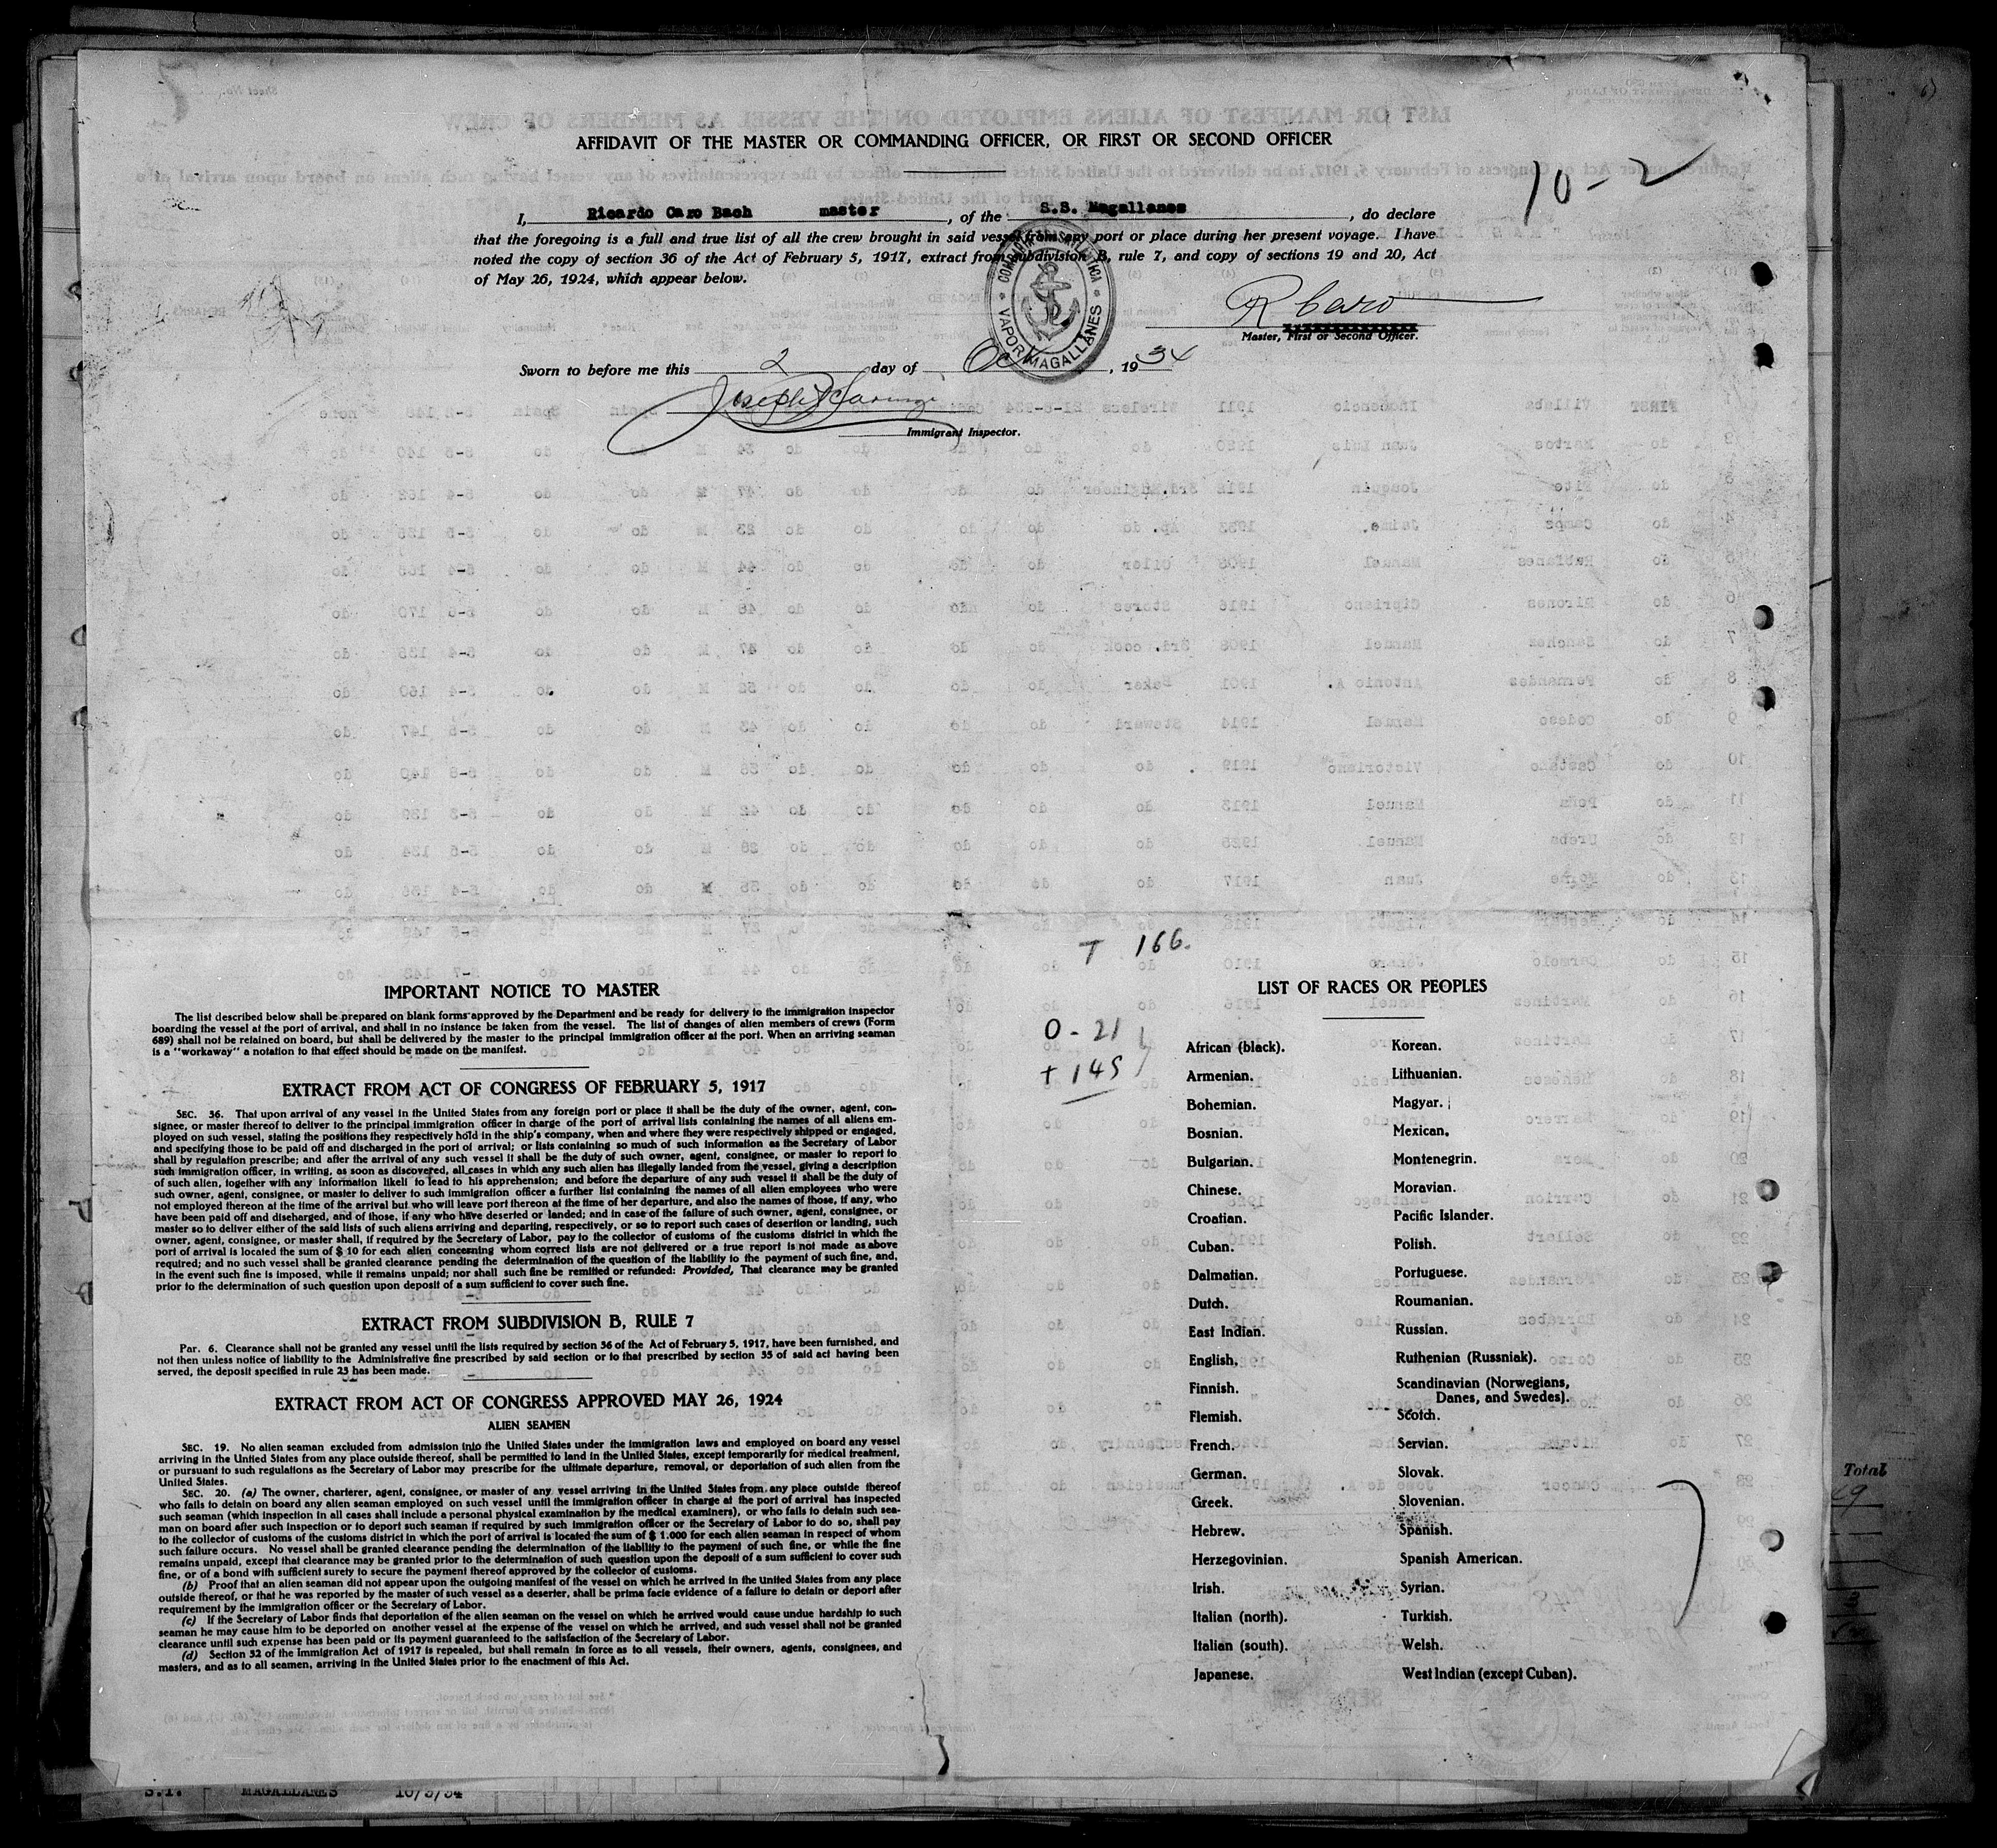 AFFIDAVIT OF THE MASTER OR COMMANDING OFFICER, OR FIRST OR SECOND OFFICER
10-2
I, Ricardo Caro Bach master, of the S.S. Magallanes, do declare
that the foregoing is a full and true list of all the crew brought in said vessel from any port or place during her present voyage. I have
noted the copy of section 36 of the Act of February 5, 1917, extract from subdivision B, rule 7, and copy of sections 19 and 20, Act
of May 26, 1924, which appear below.
VAPOR MAGALLANES
R Caro
Master, First or Second Officer.
Sworn to before me this 2 day of Oct, 1934
Joseph
Immigrant Inspector.
T 166.
O - 21
+ 145
IMPORTANT NOTICE TO MASTER
The list described below shall be prepared on blank forms approved by the Department and be ready for delivery to the immigration inspector
boarding the vessel at the port of arrival, and shall in no instance be taken from the vessel. The list of changes of alien members of crews (Form
689) shall not be retained on board, but shall be delivered by the master to the principal immigration officer at the port. When an arriving seaman
is a "workaway" a notation to that effect should be made on the manifest.
EXTRACT FROM ACT OF CONGRESS OF FEBRUARY 5, 1917
SEC. 36. That upon arrival of any vessel in the United States from any foreign port or place it shall be the duty of the owner, agent, con-
signee, or master thereof to deliver to the principal immigration officer in charge of the port of arrival lists containing the names of all aliens em-
ployed on such vessel, stating the positions they respectively hold in the ship's company, when and where they were respectively shipped or engaged,
and specifying those to be paid off and discharged in the port of arrival; or lists containing so much of such information as the Secretary of Labor
shall by regulation prescribe; and after the arrival of any such vessel it shall be the duty of such owner, agent, consignee, or master to report to
such immigration officer, in writing, as soon as discovered, all cases in which any such alien has illegally landed from the vessel, giving a description
of such alien, together with any information likeli to lead to his apprehension; and before the departure of any such vessel it shall be the duty of
such owner, agent, consignee, or master to deliver to such immigration officer a further list containing the names of all alien employees who were
not employed thereon at the time of the arrival but who will leave port thereon at the time of her departure, and also the names of those, if any, who
have been paid off and diseharged, and of those, if any who have deserted or landed; and in case of the failure of such owner, agent, consignee, or
master so to deliver either of the said lists of such aliens arriving and departing, respectively, or so to report such cases of desertion or landing, such
owner, agent, consignee, or master shall, if required by the Secretary of Labor, pay to the collector of customs of the customs district in which the
port of arrival is located the sum of $ 10 for each alien concerning whom correct lists are not delivered or a true report is not made as above
required; and no such vessel shall be granted clearance pending the determination of the question of the liability to the payment of such fine, and,
in the event such fine is imposed, while it remains unpaid; nor shall such fine be remitted or refunded: Provided, That clearance may be granted
prior to the determination of such question upon deposit of a sum sufficient to cover such fine.
EXTRACT FROM SUBDIVISION B, RULE 7
Par. 6. Clearance shall not be granted any vessel until the lists required by section 36 of the Act of February 5, 1917, have been furnished, and
not then unless notice of liability to the Administrative fine prescribed by said section or to that prescribed by section 35 of said act having been
served, the deposit specified in rule 23 has been made.
EXTRACT FROM ACT OF CONGRESS APPROVED MAY 26, 1924
ALIEN SEAMEN
SEC. 19. No alien seaman excluded from admission into the United States under the immigration laws and employed on board any vessel
arriving in the United States from any place outside thereof, shall be permitted to land in the United States, except temporarily for medical treatment,
or pursuant to such regulations as the Secretary of Labor may prescribe for the ultimate departure, removal, or deportation of such alien from the
United States.
SEC. 20. (a) The owner, charterer, agent, consignee, or master of any vessel arriving in the United States from any place outside thereof
who fails to detain on board any alien seaman employed on such vessel until the immigration officer in charge at the port of arrival has inspected
such seaman (which inspection in all cases shall include a personal physical examination by the medical examiners), or who fails to detain such sea-
man on board after such inspection or to deport such seaman if required by such immigration officer or the Secretary of Labor to do so, shall pay
to the collector of customs of the customs district in which the port of arrival is located the sum of $ 1.000 for each alien seaman in respect of whom
such failure occurs. No vessel shall be granted clearance pending the determination of the liability to the payment of such fine, or while the fine
remains unpaid, except that clearance may be granted prior to the determination of such question upon the deposit of a sum sufficient to cover such
fine, or of a bond with sufficient surety to secure the payment thereof approved by the collector of customs.
(b) Proof that an alien seaman did not appear upon the outgoing manifest of the vessel on which he arrived in the United States from any place
outside thereof, or that he was reported by the master of such vessel as a deserter, shall be prima facie evidence of a failure to detain or deport after
requirement by the immigration officer or the Secretary of Labor.
(c) If the Secretary of Labor finds that deportation of the alien seaman on the vessel on which he arrived would cause undue hardship to such
seaman he may cause him to be deported on another vessel at the expense of the vessel on which he arrived, and such vessel shall not be granted
clearance until such expense has been paid or its payment guaranteed to the satisfaction of the Secretary of Labor.
(d) Section 32 of the Immigration Act of 1917 is repealed, but shall remain in force as to all vessels, their owners, agents, consignees, and
masters, and as to all seamen, arriving in the United States prior to the enactment of this Act.
LIST OF RACES OR PEOPLES
African (black). Korean.
Armenian. Lithuanian.
Bohemian. Magyar.
Bosnian. Mexican.
Bulgarian. Montenegrin.
Chinese. Moravian.
Croatian. Pacific Islander.
Cuban. Polish.
Dalmatian. Portuguese.
Dutch. Roumanian.
East Indian. Russian.
English. Ruthenian (Russniak).
Finnish. Scandinavian (Norwegians,
Danes, and Swedes).
Flemish. Scotch.
French. Servian.
German. Slovak.
Greek. Slovenian.
Hebrew. Spanish.
Herzegovinian. Spanish American.
Irish. Syrian.
Italian (north). Turkish.
Italian (south). Welsh.
Japanese. West Indian (except Cuban).
Total
MAGALLANES